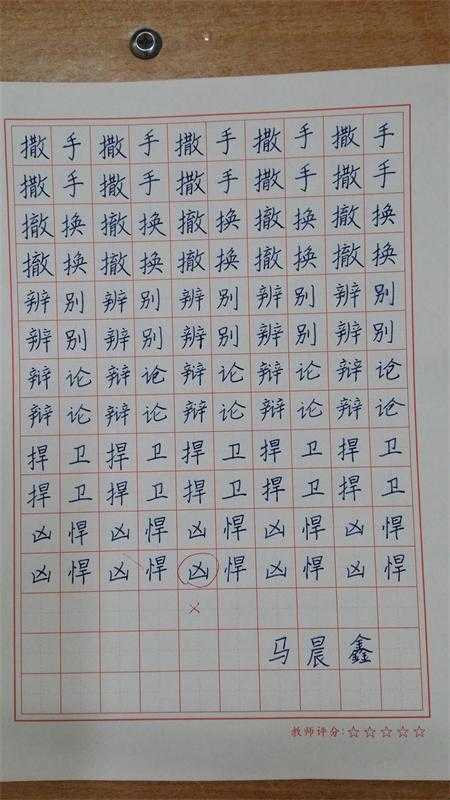 撒手撒手撒手撒手撒手
撒手撒手撒手撒手撒手
撤换撤换撤换撤换撤换
撤换撤换撤换撤换撤换
辨别辨别辨别辨别辨别
辨别辨别辨别辨别辨别
辩论辩论辩论辩论辩论
辩论辩论辩论辩论辩论
捍卫捍卫捍卫捍卫捍卫
捍卫捍卫捍卫捍卫捍卫
凶悍凶悍凶悍凶悍凶悍
凶悍凶悍凶悍凶悍凶悍
×
马晨鑫
教师评分:☆☆☆☆☆